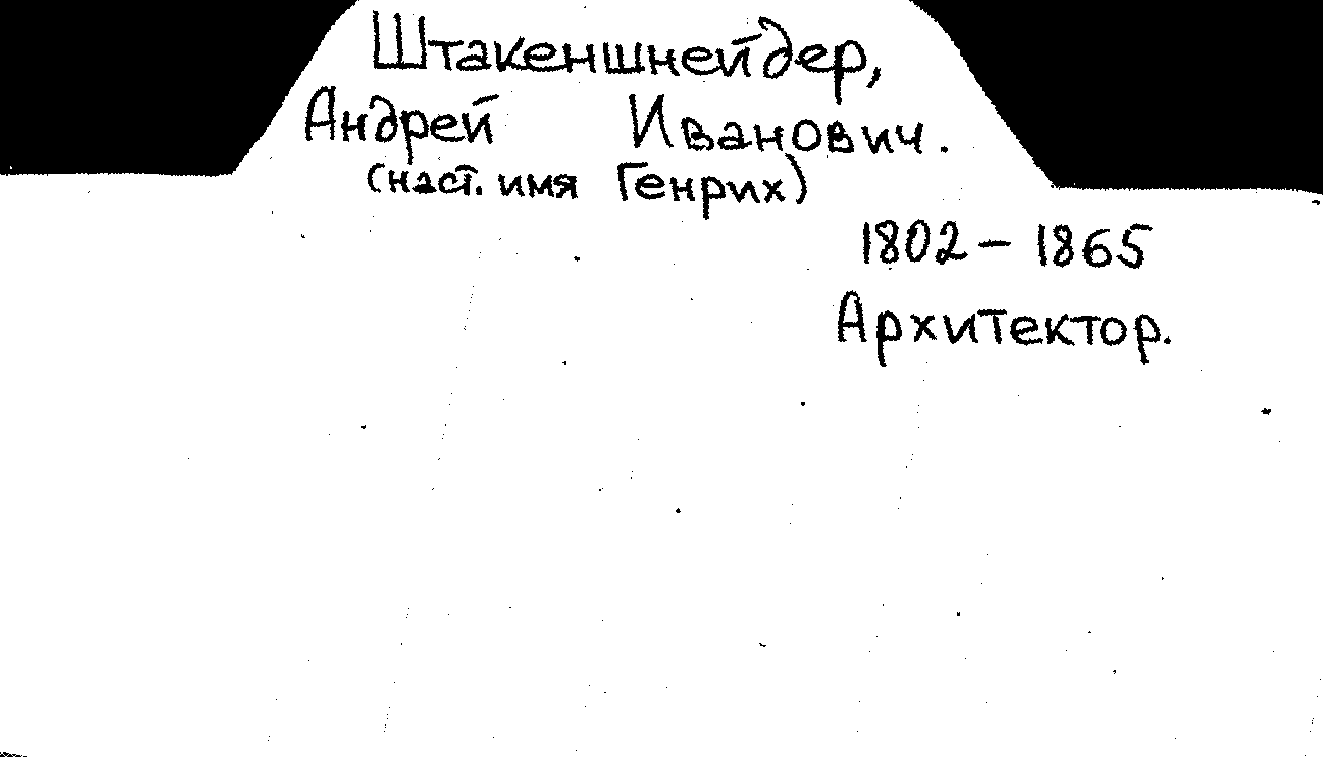 Штакеншнейдер,
Андрей Иванович.
(наст. имя Генрих)
1802 – 1865
Архитектор.